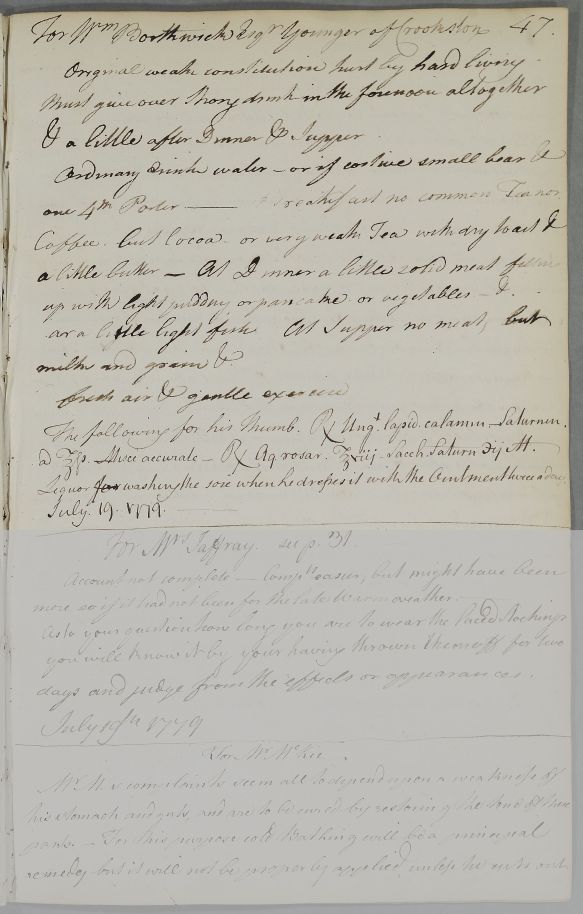 For Wm Borthwick Esqr Younger of Crookston 47.
Original weak constitution hurt by hard living.
Must give over strong drink in the forenoon altogether
& a little after Dinner & Supper.
Ordinary drink water – or if costive small bear &
one 4th Porter — Breakfast no common Tea nor
Coffee. but Cocoa – or very weak Tea with dry toast &
a little butter – At Dinner a little solid meat filling
up with light pudding or pancake or vegetables – &.
or a little light fish At Supper no meat, but
milk and grain &
fresh air & gentle exercise
The following for his thumb. ℞ Ungt. lapid. calamin. Saturnin.
a ℥ſs. Misce accurate – ℞ Aq rosar. ℥viij Sacch. Saturn ʒij M.
Liquor for washing the sore when he dresses it with the Ointment twice a day.
July. 19. 1779.
For Mrs Jaffray. see p. 31.
Account not complete – Compts easier, but might have been
more so if it had not been for the late warm weather.
As to your question how long you are to wear the laced Stockings
you will know it by your having thrown them off for two
days and judge from the effects or appearances.
July 19th 1779
For Mr McKie.
Mr. M's complaints seem all to depend upon a weakness of
his stomach and guts, and are to be cured by restoring the tone of these
parts. – For this purpose cold Bathing will be a principal
remedy but it will not be properly applied unless he cuts out